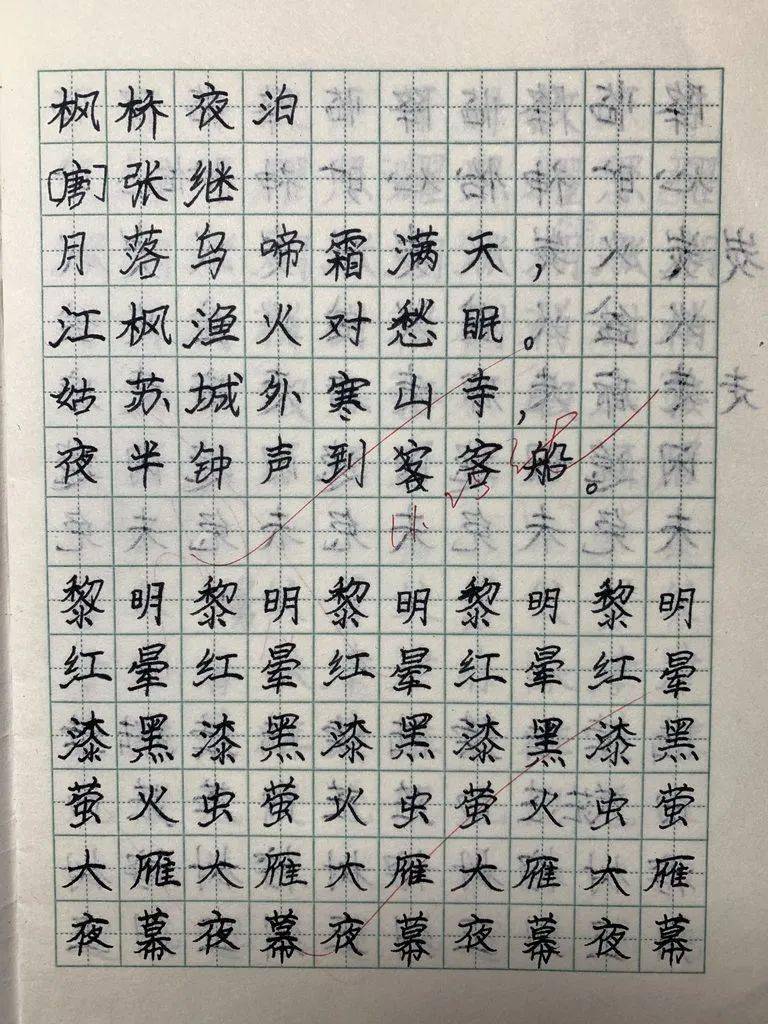 枫桥夜泊
[唐]张继
月落乌啼霜满天，
江枫渔火对愁眠。
姑苏城外寒山寺，
夜半钟声到客客船。
黎明黎明黎明黎明黎明
红晕红晕红晕红晕红晕
漆黑漆黑漆黑漆黑漆黑
萤火虫萤火虫萤火虫萤
大雁大雁大雁大雁大雁
夜幕夜幕夜幕夜幕夜幕